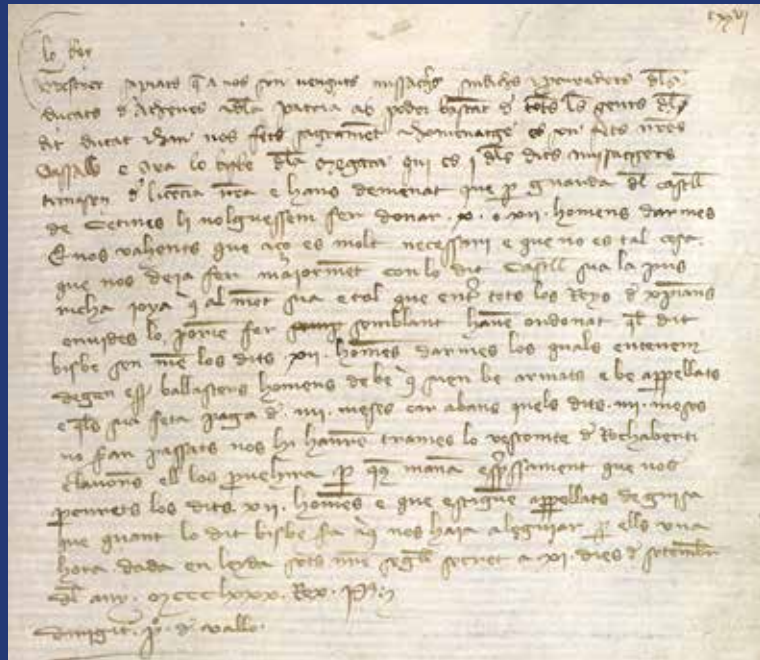 cxxvi
lo Rey
Tresorer sapiats q̄ a nos son venguts missatgs̄ sindichs e procuradors dl̄s
ducats d Athenes e dl̄a patria ab poder bastāt d totes les gents dl̄s
dit ducat e han nos fets sagramēt e homenatge e son fets nr̄es
vassalls e Ara lo bisbe dl̄a Megara qui es j dl̄s dits missatgers
tornassen d licēcia nr̄a e hans demenat que p guarda dl̄ castell
de Cetines li volguessem fer donar .x. o xii. homens darmes
E nos vahents que aço es molt necessari e que no es tal cosa
que nos deja fer maiormēt con lo dit Castell sia la pus
richa joya q̄ al mōt sia e tal que entr̄ tots los Reys d xp̄ians
envides lo porie fer semblant havē ordonat ql̄ dit
bisbe sen mē los dits xii. homēs darmes los quals entenem
degen ess̄ ballasters homens de be q̄ sien be armats e be appellats
e ql̄s sia feta paga d. iiii. meses car abans quels dits .iiii. meses
no seran passats nos hi haurē trames lo vescomte d Rochaberti
e lavors ell los provehira p q̄us manā exp̄ssament que vos
procurets los dits xii. homēs e que estiguē appellats de guisa
que quant lo dit bisbe sia aq̄ nos haia a leguiar p ells una
hora dada en leyda sots nr̄e segell secret a xi. dies d setembr̄
dl̄ any. Mccclxxx. Rex .P.
dirigit̄ . p̄o. d vallo.